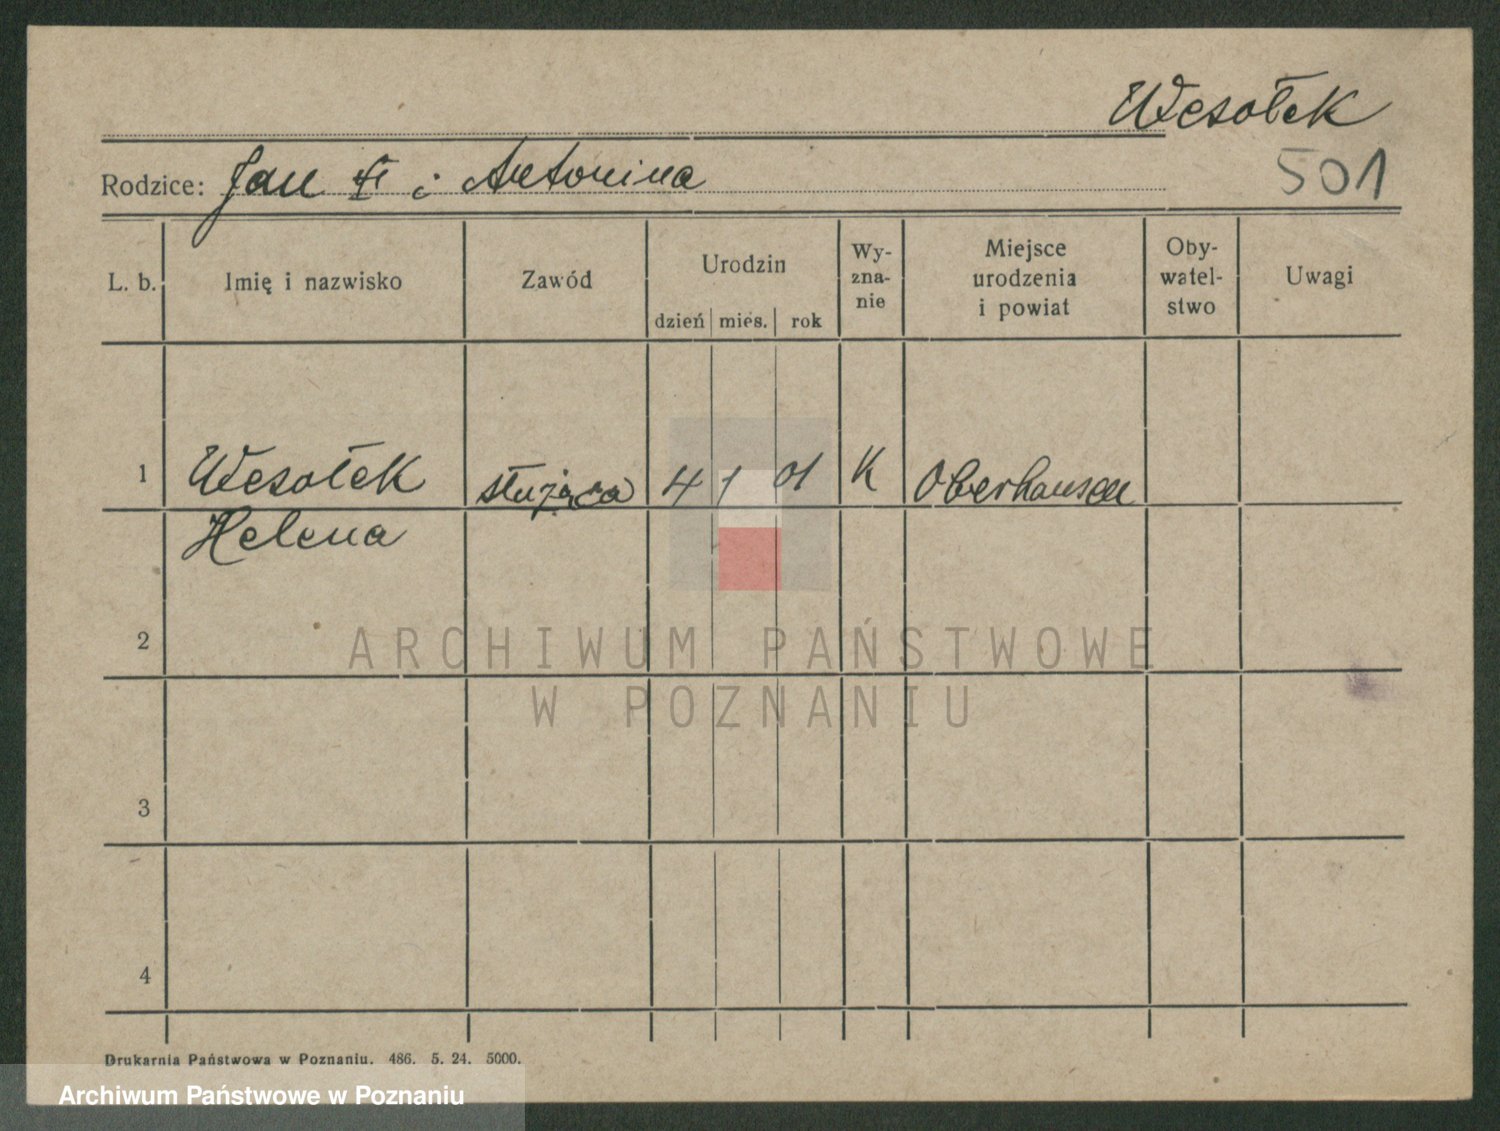 Wesołek
Rodzice: Jan † i Antonina
501
L. b. Imię i nazwisko Zawód Urodzin dzień mies. rok Wy-zna-nie Miejsce urodzenia i powiat Oby-watel-stwo Uwagi
1 Wesołek służąca 4 1 01 K Oberhausen
Helena
2
ARCHIWUM PAŃSTWOWE
W POZNANIU
3
4
Drukarnia Państwowa w Poznaniu. 486. 5. 24. 5000.
Archiwum Państwowe w Poznaniu